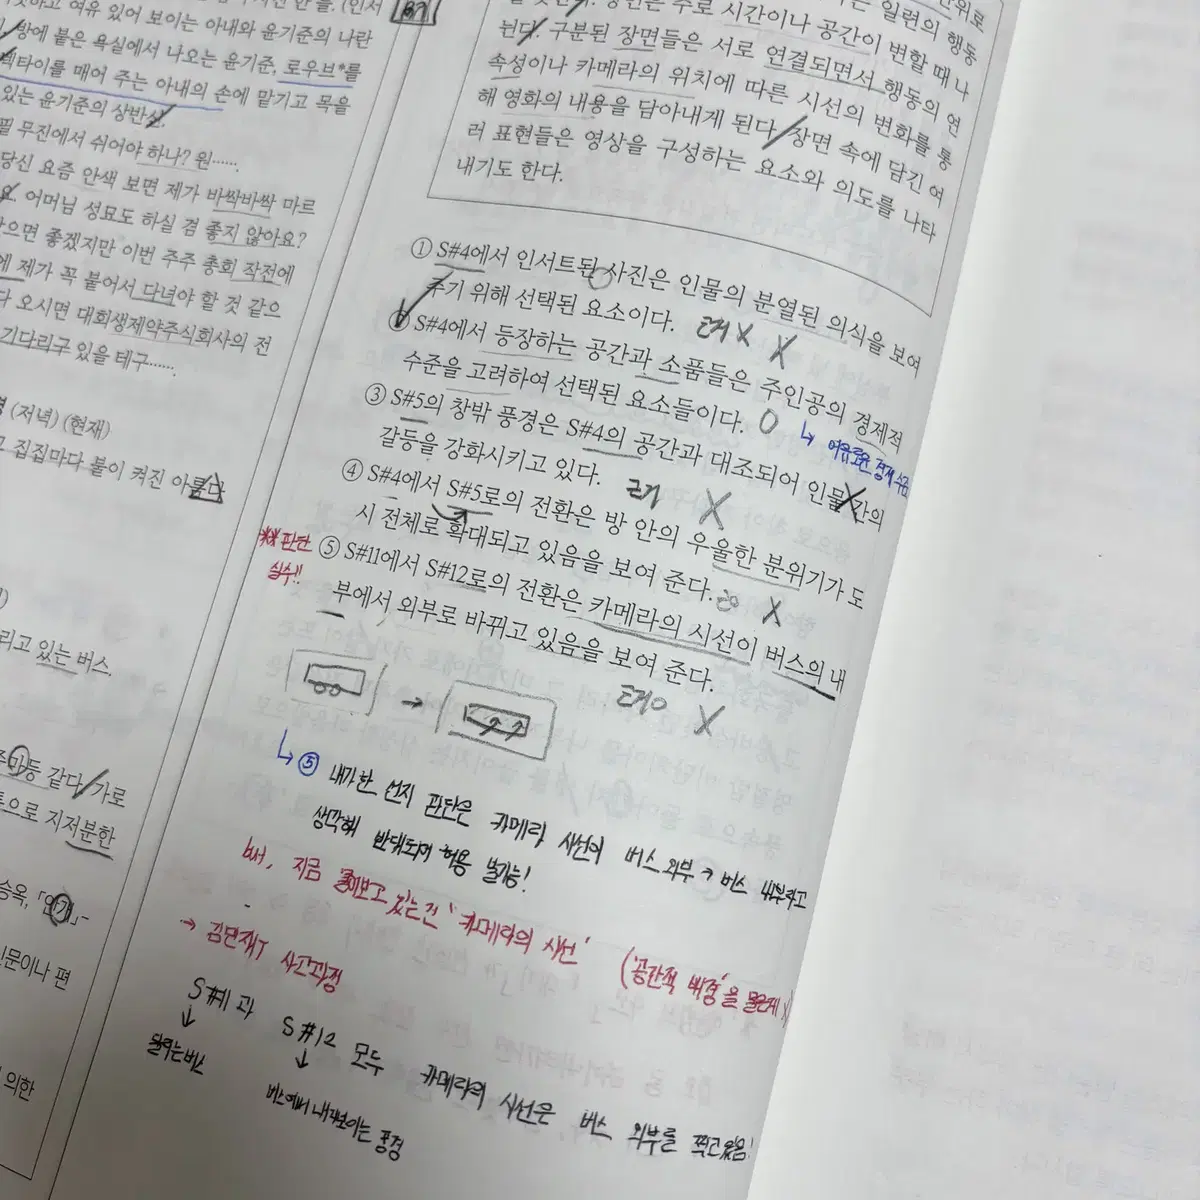 여유 있어 보이는 아내와 윤기준의 나란
방에 붙은 욕실에서 나오는 윤기준, 로우브*를
넥타이를 매어 주는 아내의 손에 맡기고 목을
있는 윤기준의 상반신.
필 무진에서 쉬어야 하나? 원……
당신 요즘 안색 보면 제가 바싹바싹 마르
요. 어머님 성묘도 하실 겸 좋지 않아요?
으면 좋겠지만 이번 주주 총회 작전에
제가 꼭 붙어서 다녀야 할 것 같으
다 오시면 대회생제약주식회사의 전
기다리구 있을 테구……
(저녁) (현재)
집집마다 불이 켜진 아름다
리고 있는 버스.
등 같다. 가로
으로 지저분한
승옥, 「안개」-
인문이나 편
의한
일련의 행동
장면은 주로 시간이나 공간이 변할 때 나
뉜다. 구분된 장면들은 서로 연결되면서 행동의 연
속성이나 카메라의 위치에 따른 시선의 변화를 통
해 영화의 내용을 담아내게 된다. 장면 속에 담긴 여
러 표현들은 영상을 구성하는 요소와 의도를 나타
내기도 한다.
① S#4에서 인서트된 사진은 인물의 분열된 의식을 보여
주기 위해 선택된 요소이다. 근거 X X
② S#4에서 등장하는 공간과 소품들은 주인공의 경제적
수준을 고려하여 선택된 요소들이다. O
↳ 여유로운 경제 수준
③ S#5의 창밖 풍경은 S#4의 공간과 대조되어 인물 간의
갈등을 강화시키고 있다. 근거 X
④ S#4에서 S#5로의 전환은 방 안의 우울한 분위기가 도
시 전체로 확대되고 있음을 보여 준다. X
** 판단
실수!!
⑤ S#11에서 S#12로의 전환은 카메라의 시선이 버스의 내
부에서 외부로 바뀌고 있음을 보여 준다.
X
↳ ⑤ 내가 한 선지 판단은 카메라 시선이 버스 외부 → 버스 내부라고
생각해 반대되어 허용 불가능!
but, 지금 물어보고 있는 건 '카메라의 시선' ('공간적 배경'을 물은게 X)
→ 김민재T 사고과정
S#11과 S#12 모두 카메라의 시선은 버스 외부를 찍고 있음!
↓ ↓
달리는 버스
버스에서 내다보이는 풍경